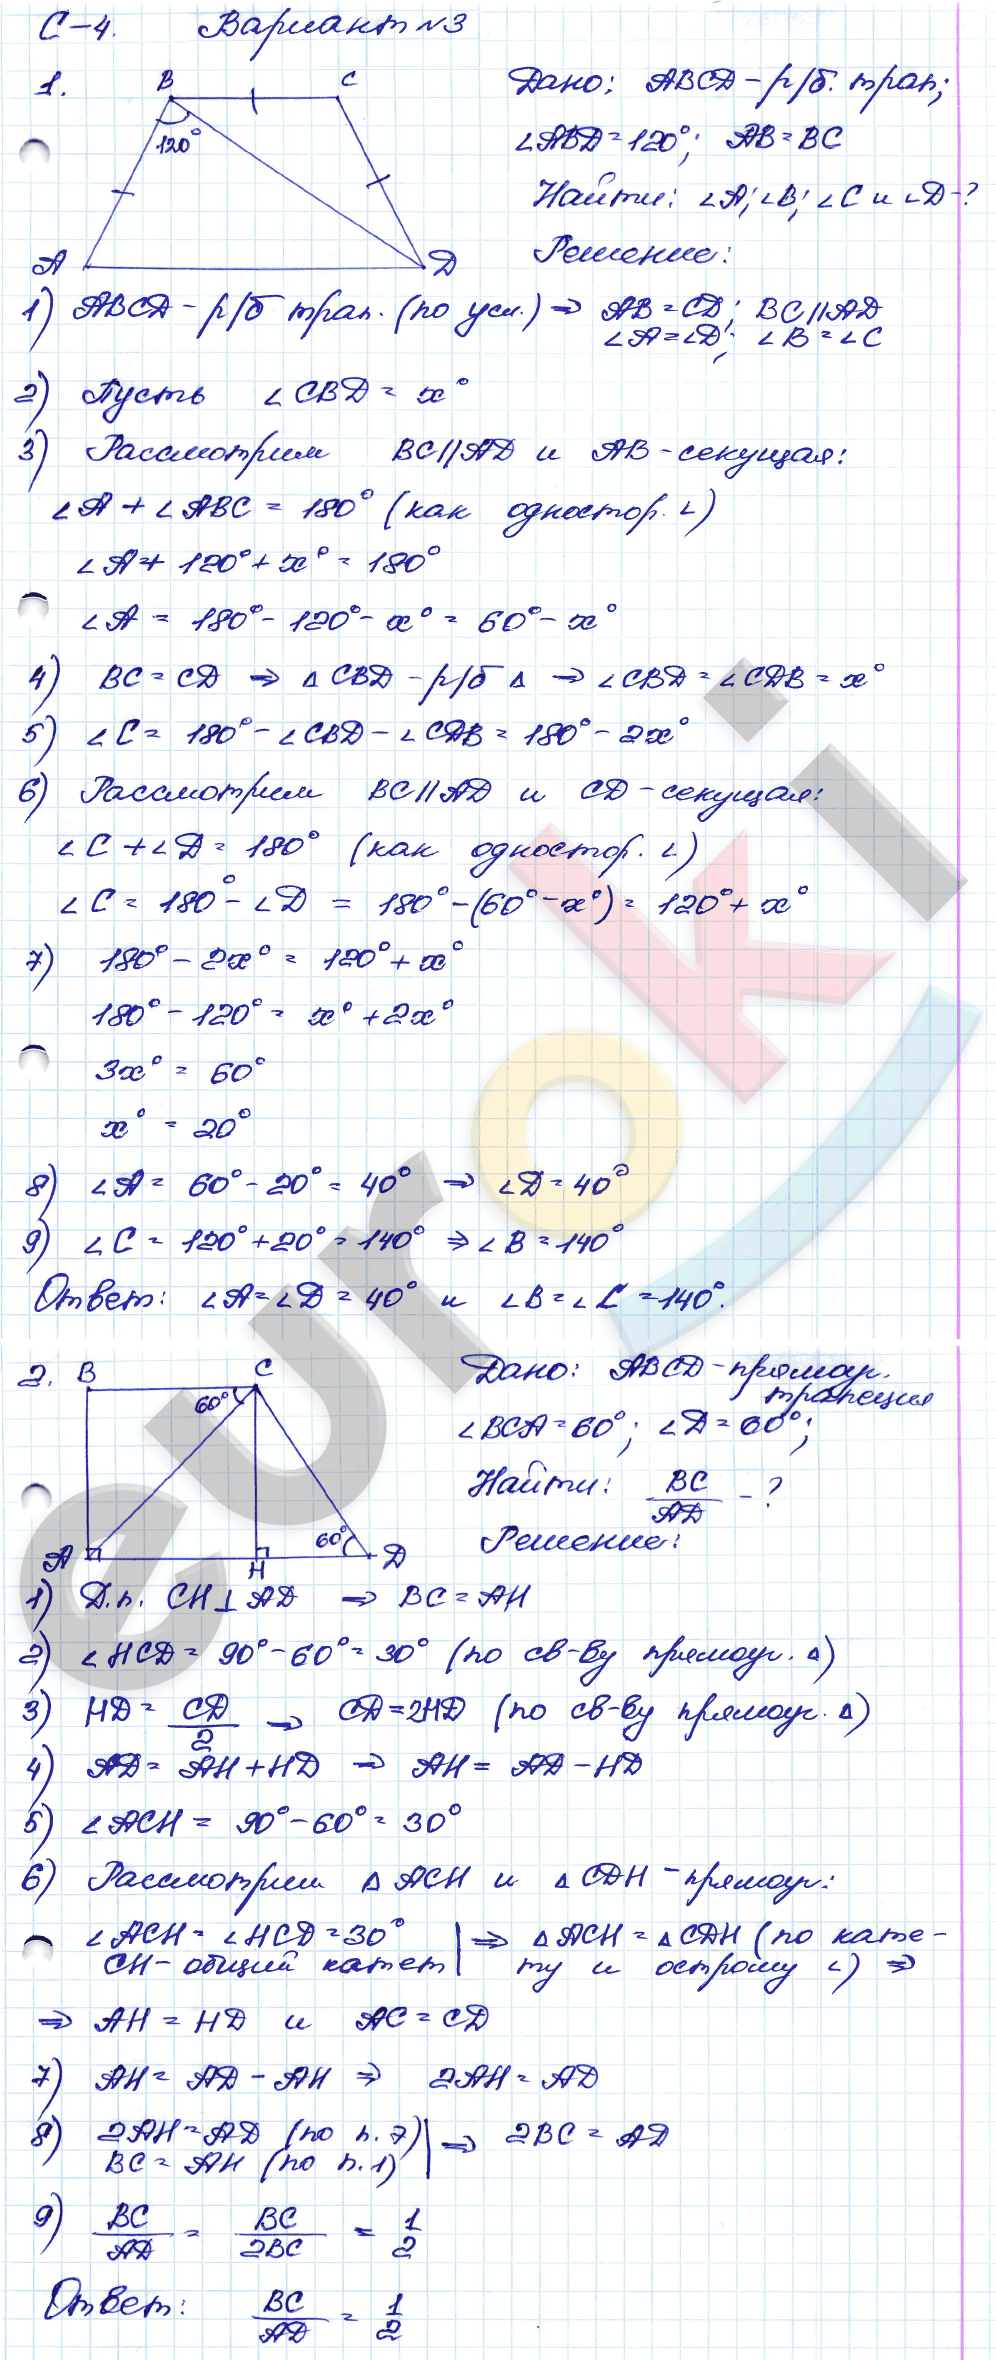 С-4. Вариант №3
1.
B C
120°
A D
Дано: ABCD - р/б. трап;
∠ABD = 120°; AB = BC
Найти: ∠A; ∠B; ∠C и ∠D - ?
Решение:
1) ABCD - р/б трап. (по усл.) ⇒ AB = CD; BC || AD
∠A = ∠D; ∠B = ∠C
2) Пусть ∠CBD = x°
3) Рассмотрим BC || AD и AB - секущая:
∠A + ∠ABC = 180° (как одностор. ∠)
∠A + 120° + x° = 180°
∠A = 180° - 120° - x° = 60° - x°
4) BC = CD ⇒ △CBD - р/б △ ⇒ ∠CBD = ∠CDB = x°
5) ∠C = 180° - ∠CBD - ∠CDB = 180° - 2x°
6) Рассмотрим BC || AD и CD - секущая:
∠C + ∠D = 180° (как одностор. ∠)
∠C = 180° - ∠D = 180° - (60° - x°) = 120° + x°
7) 180° - 2x° = 120° + x°
180° - 120° = x° + 2x°
3x° = 60°
x° = 20°
8) ∠A = 60° - 20° = 40° ⇒ ∠D = 40°
9) ∠C = 120° + 20° = 140° ⇒ ∠B = 140°
Ответ: ∠A = ∠D = 40° и ∠B = ∠C = 140°.
2.
B C
60°
60°
A H D
Дано: ABCD - прямоуг.
трапеция
∠BCA = 60°; ∠D = 60°;
Найти: BC/AD - ?
Решение:
1) Д.п. CH ⊥ AD ⇒ BC = AH
2) ∠HCD = 90° - 60° = 30° (по св-ву прямоуг. △)
3) HD = CD/2 ⇒ CD = 2HD (по св-ву прямоуг. △)
4) AD = AH + HD ⇒ AH = AD - HD
5) ∠ACH = 90° - 60° = 30°
6) Рассмотрим △ACH и △CDH - прямоуг:
∠ACH = ∠HCD = 30° | ⇒ △ACH = △CDH (по кате-
CH - общий катет | ту и острому ∠) ⇒
⇒ AH = HD и AC = CD
7) AH = AD - AH ⇒ 2AH = AD
8) 2AH = AD (по п. 7) | ⇒ 2BC = AD
BC = AH (по п. 1) |
9) BC/AD = BC/2BC = 1/2
Ответ: BC/AD = 1/2
euroki